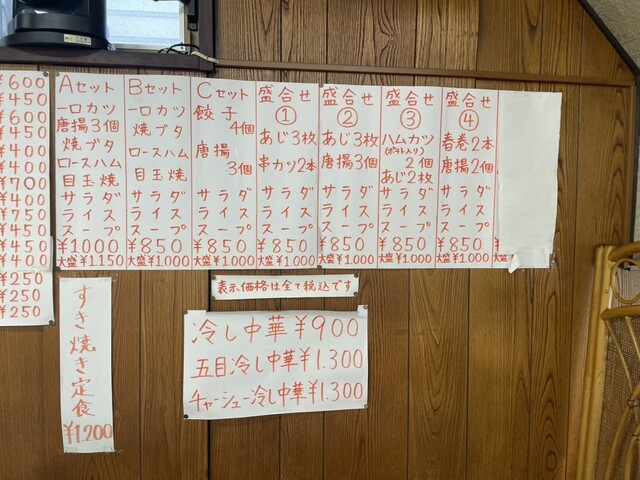 ¥600
¥450
¥600
¥450
¥400
¥400
¥700
¥400
¥750
¥450
¥450
¥400
¥250
¥250
¥250
Aセット
一口カツ
唐揚3個
焼ブタ
ロースハム
目玉焼
サラダ
ライス
スープ
¥1000
大盛¥1.150
Bセット
一口カツ
焼ブタ
ロースハム
目玉焼
サラダ
ライス
スープ
¥850
大盛¥1.000
Cセット
餃子
4個
唐揚
3個
サラダ
ライス
スープ
¥850
大盛¥1.000
盛合せ
①
あじ3枚
串カツ2本
サラダ
ライス
スープ
¥850
大盛¥1.000
盛合せ
②
あじ3枚
唐揚3個
サラダ
ライス
スープ
¥850
大盛¥1.000
盛合せ
③
ハムカツ
2個
あじ2枚
サラダ
ライス
スープ
¥850
大盛¥1.000
盛合せ
④
春巻2本
唐揚2個
サラダ
ライス
スープ
¥850
大盛¥1.000
¥
大盛
表示価格は全て税込です
冷し中華¥900
五目冷し中華¥1.300
チャーシュー冷し中華¥1.300
すき焼き定食
¥1.200